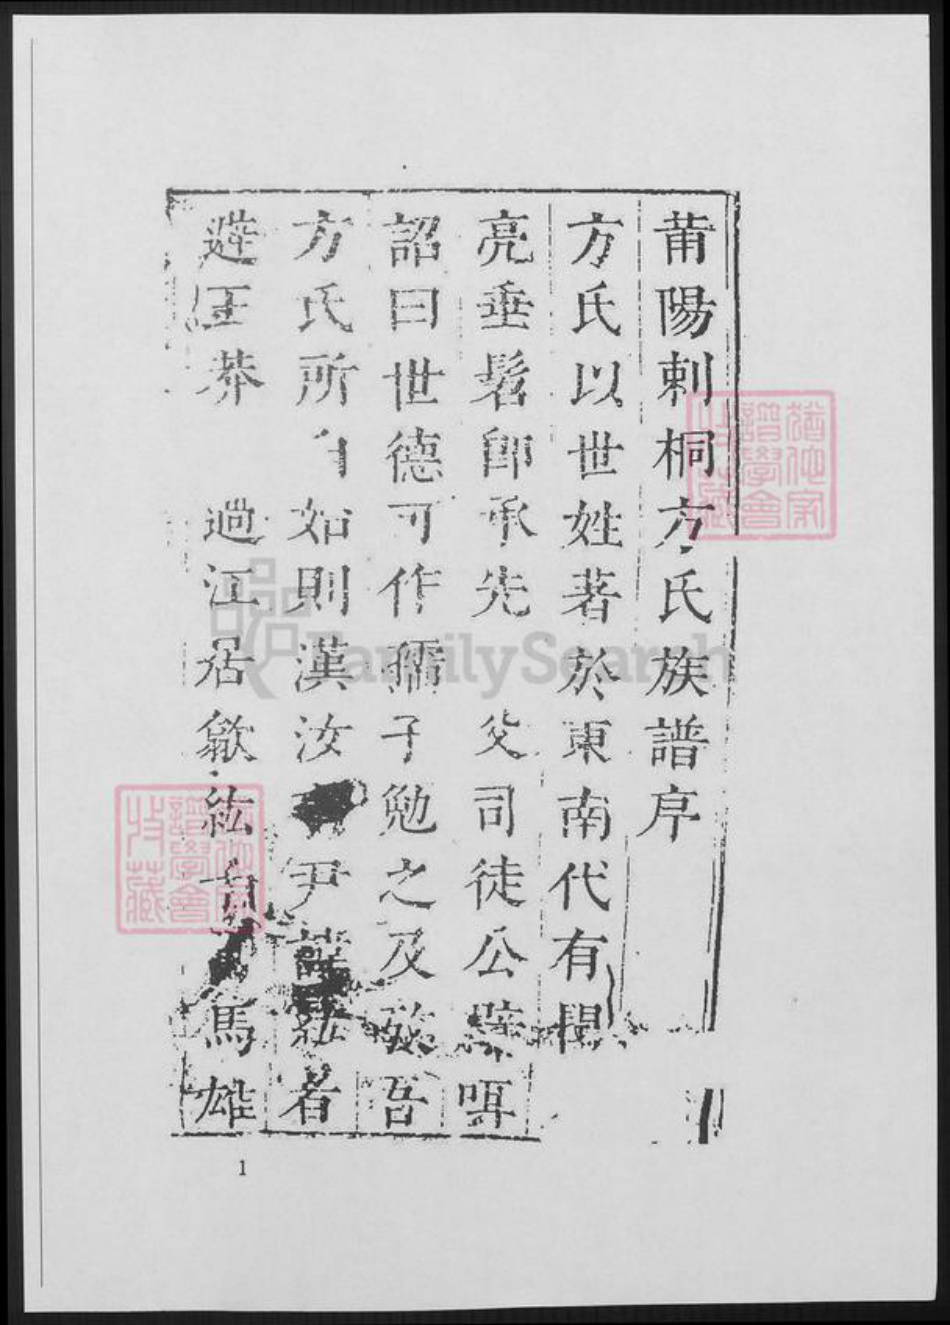 莆陽刺桐方氏族譜序
方氏以世姓著於東南代有聞
亮垂髫即承先 父司徒公辟咡
詔曰世德可作孺子勉之及敬吾
方氏所自如則漢汝 尹諱紘者
避王莽 過江居歙紘 馬雄
1
FamilySearch
譜學會
收藏
譜學會
收藏